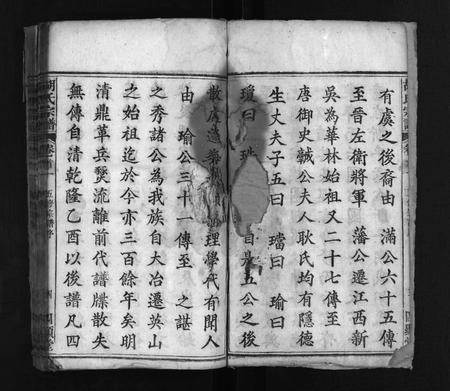 有虞之後裔由　滿公六十五傳
至晉左衛將軍　藩公遷江西新
吳為華林始祖又二十七傳至
唐御史誠公夫人耿氏均有隱德
生丈夫子五曰　璫曰　瑜曰
瓊曰　自是五公之後
散處　理學代有聞人
由　瑜公三十一傳至　之諶
之秀諸公為我族自大冶遷英山
之始祖迄於今亦三百餘年矣明
清鼎革兵燹流離前代譜牒散失
無傳自清乾隆乙酉以後譜凡四
胡氏宗譜　卷首一　五修宗譜序